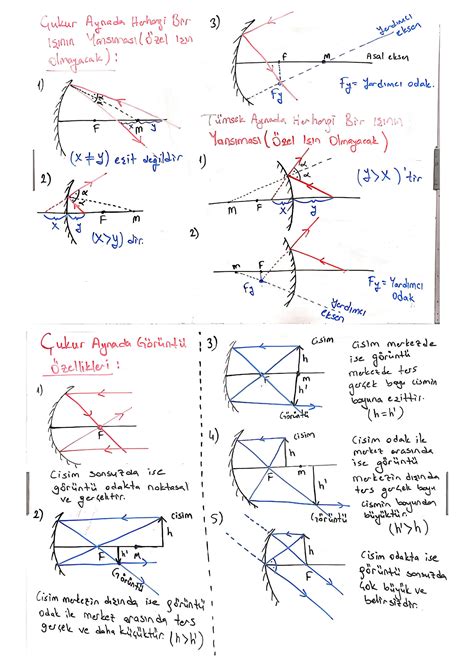 Çukur Aynada Herhangi Bir
Işının Yansıması (Özel Işın
Olmayacak) :
1)
α
α
F
M
x
y
(x ≠ y) eşit değildir
2)
α
α
x
y
F
M
(x > y) dir.
3)
yardımcı
eksen
F
M
Asal eksen
Fy
Fy = Yardımcı odak.
Tümsek Aynada Herhangi Bir Işının
Yansıması (Özel Işın Olmayacak)
1)
α
α
M
F
x
y
(y > x) 'tir
2)
M
F
Fy
Fy = Yardımcı
Odak
Yardımcı
eksen
Çukur Aynada Görüntü
Özellikleri :
1)
F
Cisim sonsuzda ise
görüntü odakta noktasal
ve gerçektir.
2)
cisim
h
F
h'
M
Görüntü
Cisim merkezin dışında ise görüntü
odak ile merkez arasında ters
gerçek ve daha küçüktür. (h > h')
3)
cisim
h
F
M
h'
Görüntü
Cisim merkezde
ise görüntü
merkezde ters
gerçek boyu cismin
boyuna eşittir.
(h = h')
4)
cisim
h
F
M
h'
Görüntü
Cisim odak ile
merkez arasında
ise görüntü
merkezin dışında
ters gerçek boyu
cismin boyundan
büyüktür.
(h' > h)
5)
h
F
Cisim odakta ise
görüntü sonsuzda
çok büyük ve
belirsizdir.